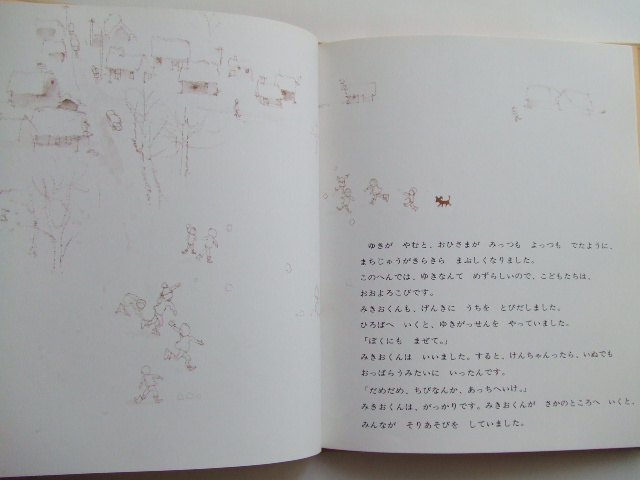 ゆきが　やむと、おひさまが　みっつも　よっつも　でたように、
まちじゅうがきらきら　まぶしくなりました。
このへんでは、ゆきなんて　めずらしいので、こどもたちは、
おおよろこびです。
みきおくんも、げんきに　うちを　とびだしました。
ひろばへ　いくと、ゆきがっせんを　やっていました。
「ぼくにも　まぜて。」
みきおくんは　いいました。すると、けんちゃんったら、いぬでも
おっぱらうみたいに　いったんです。
「だめだめ、ちびなんか、あっちへいけ。」
みきおくんは、がっかりです。みきおくんが　さかのところへ　いくと、
みんなが　そりあそびを　していました。